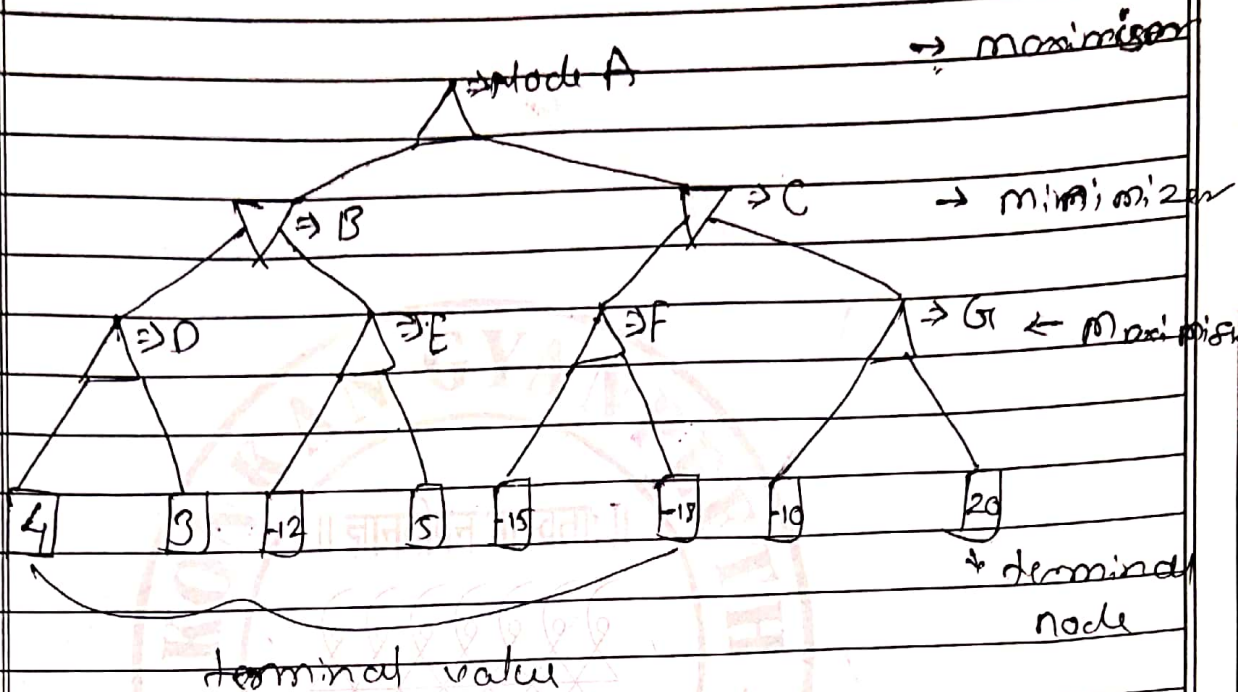 → maximiser
⇒ Node A
⇒ B
⇒ C
→ minimizer
⇒ D
⇒ E
⇒ F
⇒ G
← Maximis
4 3 -12 5 -15 -18 -10 20
terminal
node
terminal value